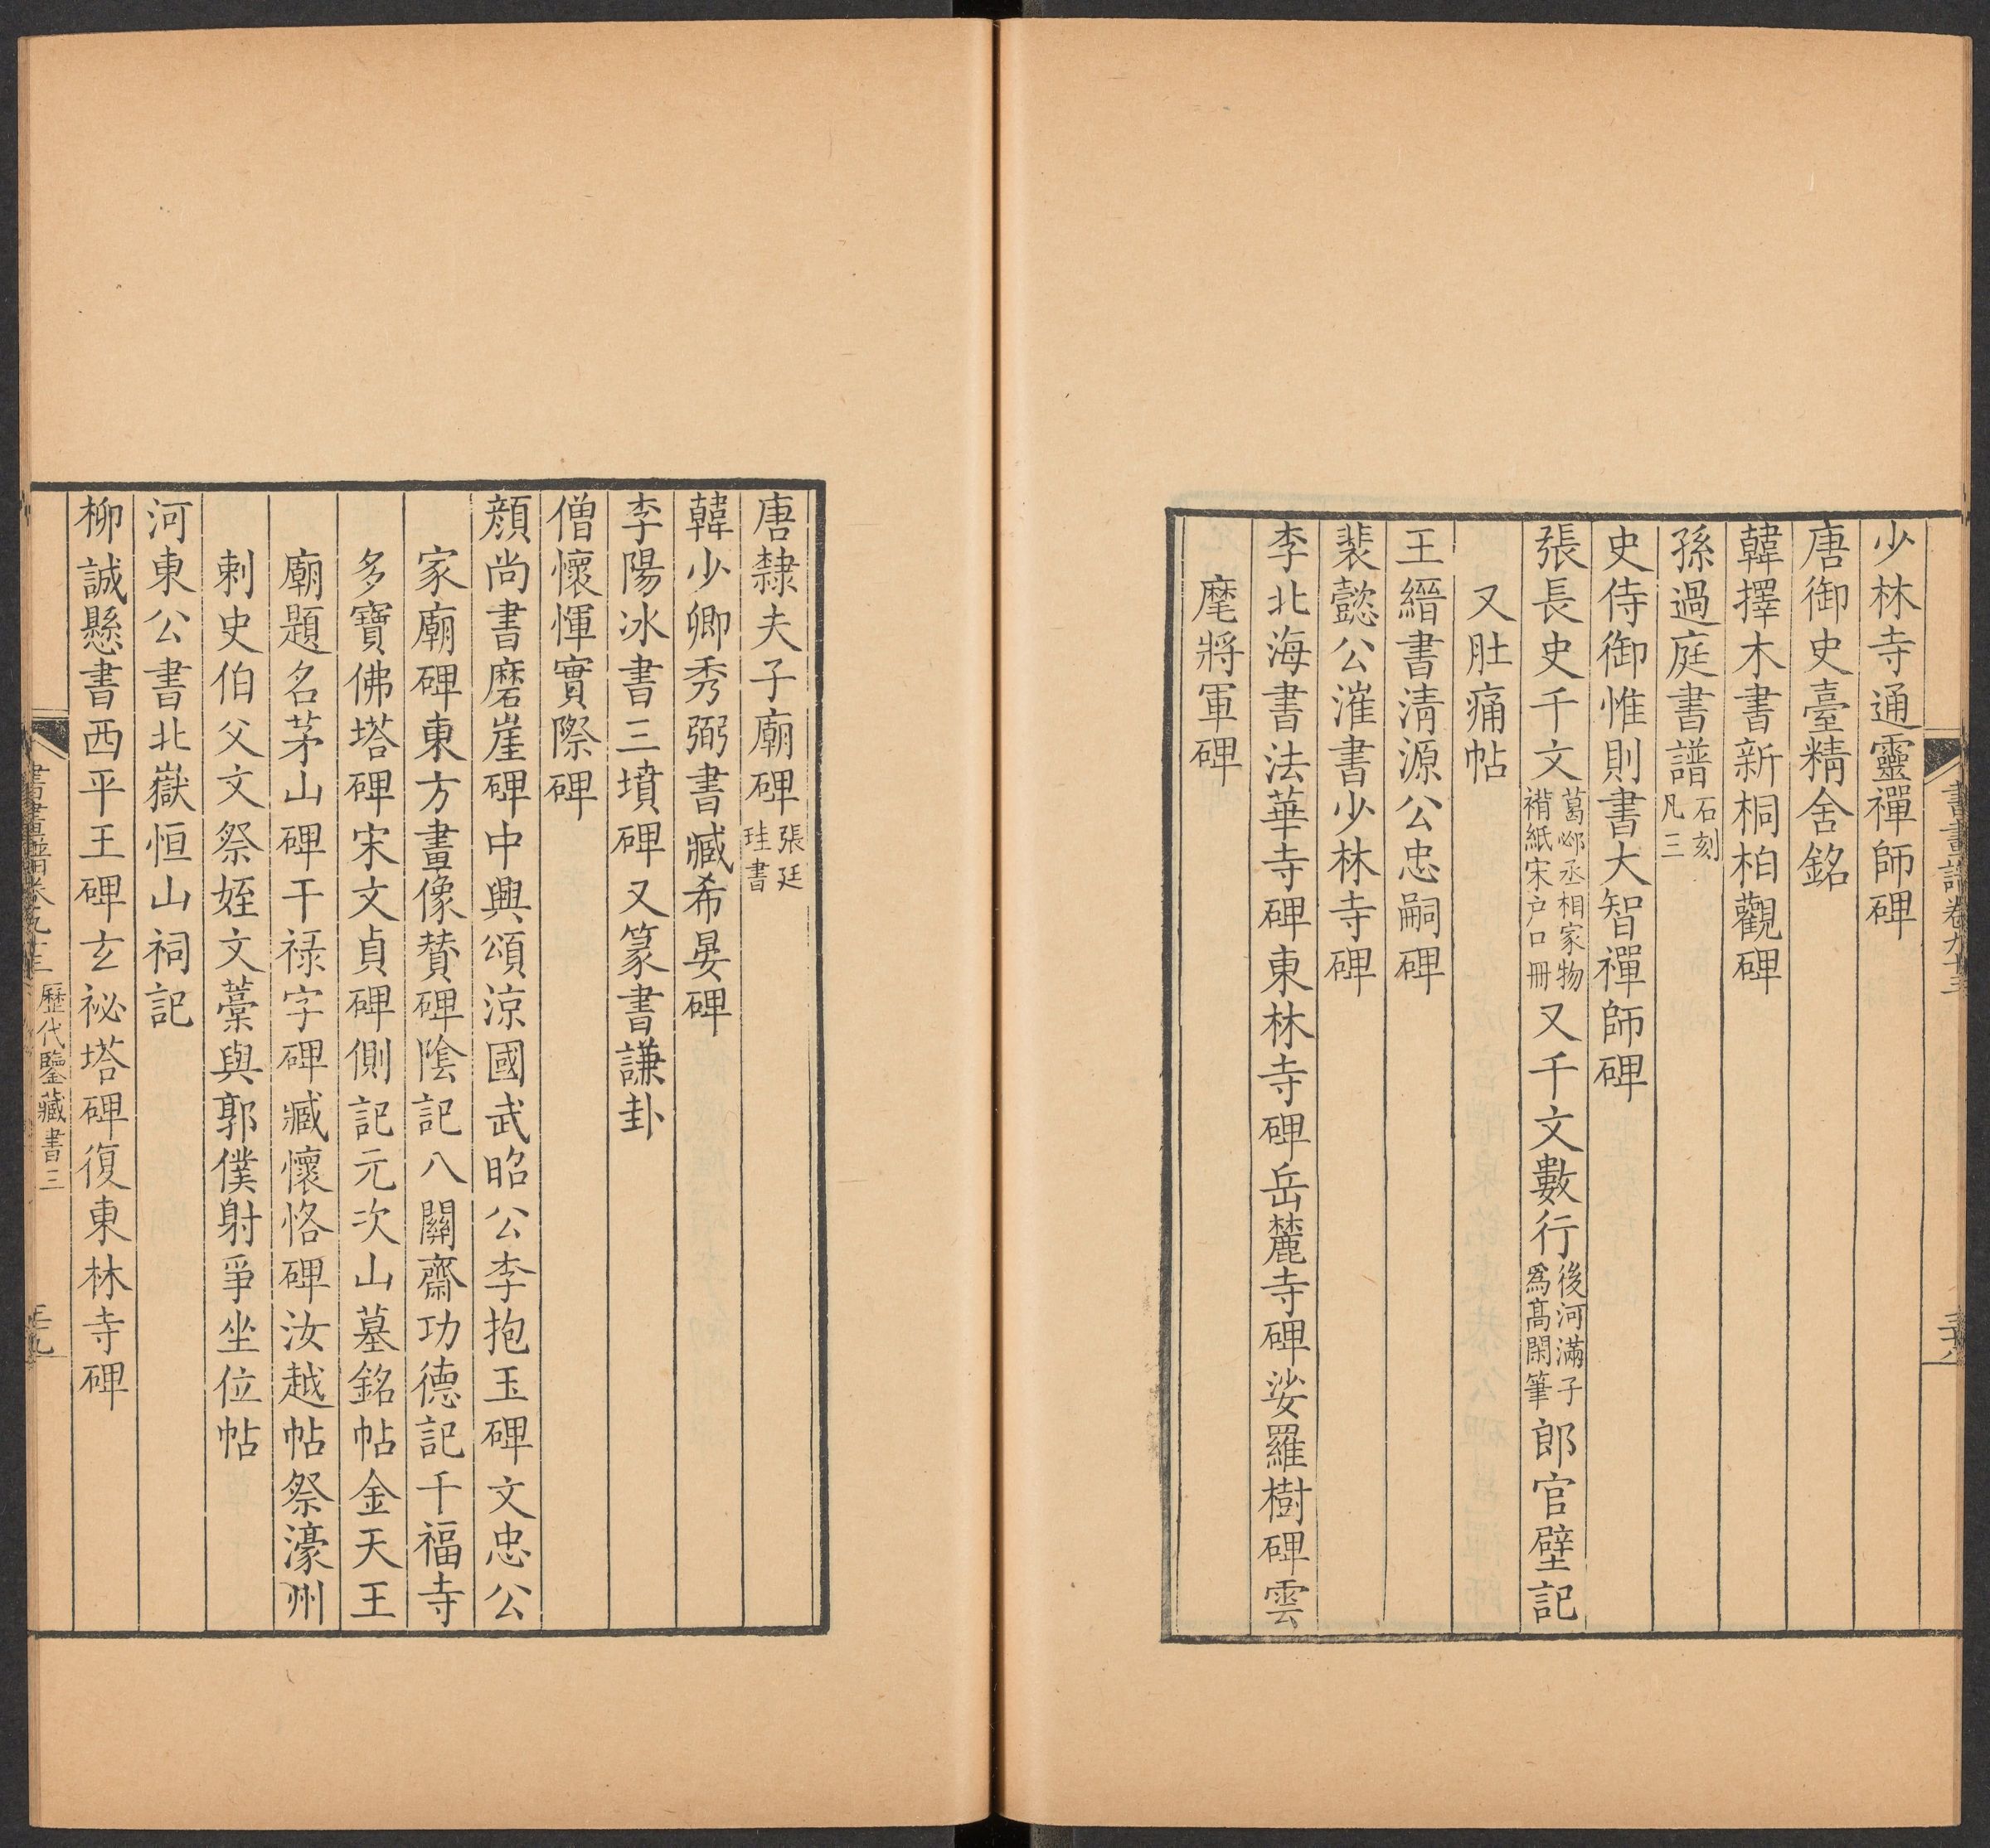 少林寺通靈禪師碑
唐御史臺精舍銘
韓擇木書新桐柏觀碑
孫過庭書譜石刻凡三
史侍御惟則書大智禪師碑
張長史千文葛邲丞相家物褙紙宋户口冊又千文數行後河滿子爲髙閑筆郎官壁記
又肚痛帖
王縉書清源公忠嗣碑
裴懿公漼書少林寺碑
李北海書法華寺碑東林寺碑岳麓寺碑娑羅樹碑雲
麾將軍碑
唐隸夫子廟碑張廷珪書
韓少卿秀弼書臧希晏碑
李陽冰書三墳碑又篆書謙卦
僧懷惲實際碑
顔尚書磨崖碑中興頌涼國武昭公李抱玉碑文忠公
家廟碑東方畫像贊碑隂記八關齋功德記千福寺
多寶佛塔碑宋文貞碑側記元次山墓銘帖金天王
廟題名茅山碑干禄字碑臧懷恪碑汝越帖祭濠州
刺史伯父文祭姪文藁與郭僕射爭坐位帖
河東公書北嶽恒山祠記
柳誠懸書西平王碑玄祕塔碑復東林寺碑
歷代鑒藏書三